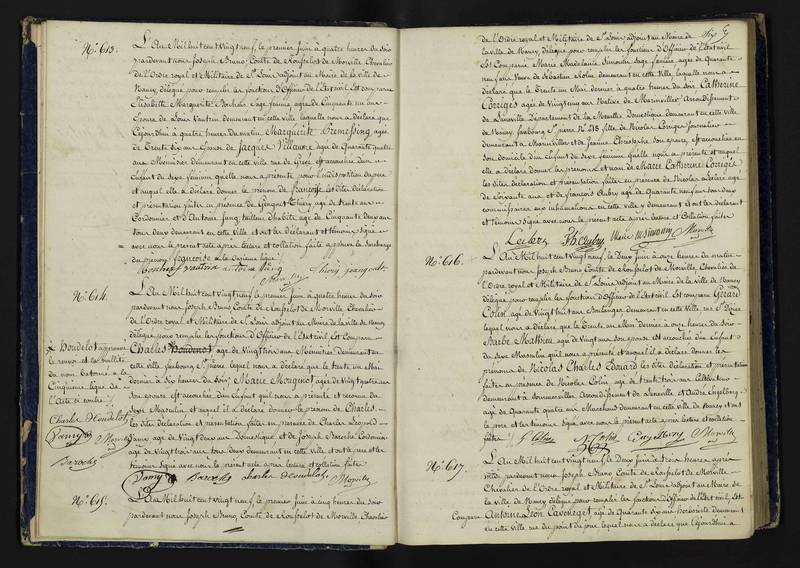 N.° 613.
L'An Mil huit cent Vingt neuf, le premier juin à quatre heures du soir
pardevant nous Joseph Bruno Comte de Rouffelot de Morville Chevalier
de l'Ordre royal et Militaire de St Louis adjoint au Maire de la ville de
Nancy délégué pour remplir les fonctions d'Officier de l'Etat civil Est comparue
Elisabeth Marguerite sage femme, agée de Cinquante un ans
Epouse de Louis Vautrin demeurant en cette ville laquelle nous a déclaré que
cejourd'hui à quatre heures du matin Marguerite agée
de Trente six ans Epouse de Jacques Villaume agé de Quarante quatre
ans Menuisier demeurant en cette ville rue de Grève est accouchée d'un
Enfant du sexe féminin qu'elle nous a présenté pour
et auquel elle a déclaré donner le prénom de Françoise les dites déclaration
et présentation faites en présence de Gengoult Thiery agé de trente ans
Cordonnier et d'Antoine Jung, tailleur d'habits agé de Cinquante deux ans
tous deux demeurant en cette Ville et ont les déclarant et témoins signé
avec nous le présent acte après lecture et collation faite approuvé la surcharge
du prénom françoise à la onzième ligne
Vautrin antoine jung
Morville Thiery gengoult
N.° 614.
L'An Mil huit cent Vingt neuf, le premier juin à quatre heures du soir
pardevant nous Joseph Bruno Comte de Rouffelot de Morville Chevalier
de l'Ordre royal et Militaire de St Louis adjoint au Maire de la ville de Nancy
délégué pour remplir les fonctions d'Officier de l'Etat civil Est Comparu
Charles Houdelot agé de Vingt trois ans Menuisier demeurant en
cette ville faubourg St pierre lequel nous a déclaré que le trente un Mai
dernier à dix heures du soir Marie Mougenot agée de Vingt quatre ans
son épouse est accouchée d'un Enfant qu'il nous a présenté et reconnu du
sexe Masculin et auquel il a déclaré donner le prénom de Charles
les dites déclaration et présentation faites en présence de Charles Léopold
Jamy agé de Vingt deux ans Domestique et de Joseph Baroche Cordonnier
agé de Vingt trois ans tous deux demeurant en cette ville et ont le père et les
témoins signé avec nous le présent acte après lecture et collation faite
Jamy Baroche Charles Houdelot Morville
Houdelot approuvé
le renvoi et la nullité
du mot batonné à la
Cinquième ligne de
l'acte ci contre
Charles Houdelot
Jamy Morville
Baroche
N.° 615.
L'An Mil huit cent Vingt neuf, le premier juin à cinq heures du soir
pardevant nous Joseph Bruno Comte de Rouffelot de Morville Chevalier
de l'Ordre royal et Militaire de St Louis adjoint au Maire de
la ville de Nancy, délégué pour remplir les fonctions d'Officier de l'Etat civil
Est Comparue Marie Madelaine Simonin Sage femme, agée de Quarante
neuf ans Veuve de Sébastien Rolin demeurant en cette Ville, laquelle nous a
déclaré que le Trente un Mai dernier à quatre heures du soir, Catherine
Corrigés agée de Vingt cinq ans Native de Marinviller Arrondissement
de Lunéville Département de la Meurthe Domestique demeurant en cette ville
de Nancy, faubourg St pierre N.° 218 fille de Nicolas Corrigés Journalier
demeurant à Marinviller et de Jeanne Christophe son épouse, est accouchée en
son domicile d'un Enfant du sexe féminin qu'elle nous a présenté et auquel
elle a déclaré donner les prénoms et nom de Marie Catherine Corrigés
les dites déclaration et présentation faites en présence de Nicolas Leclerc agé
de Soixante ans et de françois Aubry agé de Quarante neuf ans tous deux
commissaires aux inhumations en cette ville y demeurant et ont les déclarant
et témoins signé avec nous le présent acte après lecture et Collation faite
Leclerc Aubry Marie m Simonin Morville
N.° 616.
L'An Mil huit cent Vingt neuf, le Deux juin à onze heures du matin
pardevant nous Joseph Bruno Comte de Rouffelot de Morville, Chevalier de
l'Ordre royal et Militaire de St Louis adjoint au Maire de la ville de Nancy
délégué pour remplir les fonctions d'Officier de l'Etat civil Est comparu Gérard
Colin, agé de Vingt huit ans Boulanger demeurant en cette Ville rue St Dizier
lequel nous a déclaré que le Trente un Mai Dernier à onze heures du soir
Barbe Mathieu agée de Vingt six ans son épouse est accouchée d'un Enfant
du sexe Masculin qu'il nous a présenté et auquel il a déclaré donner les
prénoms de Nicolas Charles Edouard les dites déclaration et présentation
faites en présence de Nicolas Colin, agé de trente trois ans Cultivateur
demeurant à Bonneviller Arrondissement de Lunéville et André
agé de Quarante quatre ans Marchand demeurant en cette ville de Nancy et ont
le père et les témoins signé avec nous le présent acte après lecture et collation
faite
G Colin N Colin Morville
N.° 617.
L'An Mil huit cent Vingt neuf, le Deux juin à trois heures après
midi pardevant nous Joseph Bruno Comte de Rouffelot de Morville
Chevalier de l'Ordre royal et Militaire de St Louis adjoint au Maire de
la ville de Nancy délégué pour remplir les fonctions d'Officier de l'Etat civil, Est
Comparu Antoine Léon agé de Quarante six ans demeurant
en cette ville rue du point du jour lequel nous a déclaré que cejourd'hui à